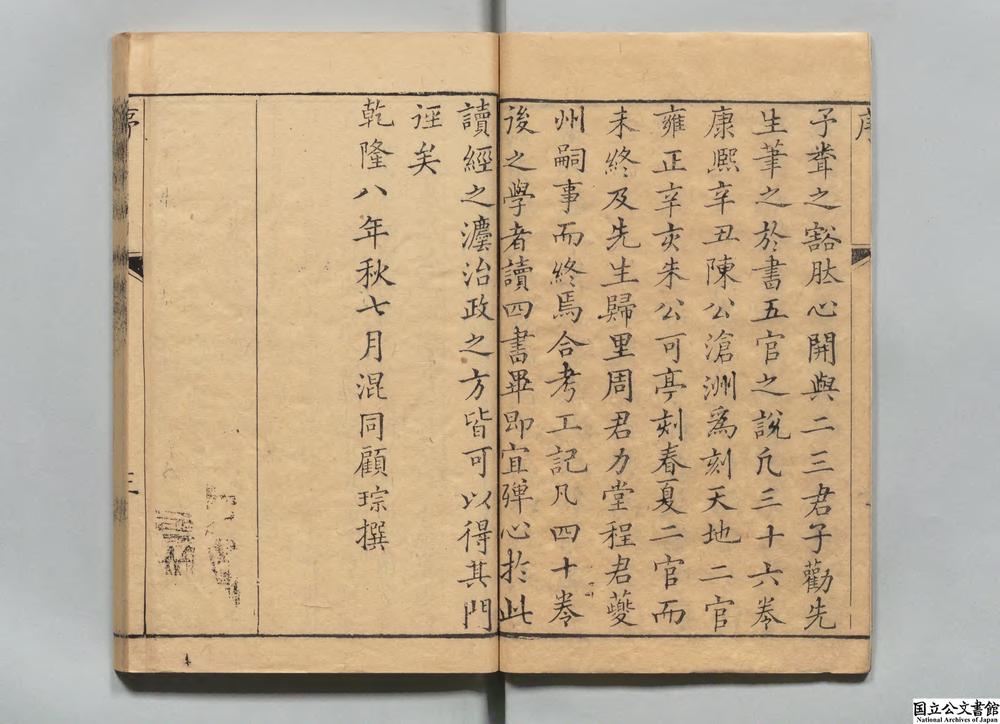 序
子聾之豁肰心開與二三君子勸先
生筆之於書五官之說凡三十六卷
康熙辛丑陳公滄洲爲刻天地二官
雍正辛亥朱公可亭刻春夏二官而
未終及先生歸里周君力堂程君夔
州嗣事而終焉合考工記凡四十卷
後之學者讀四書畢即宜殫心於此
讀經之灋治政之方皆可以得其門
逕矣
乾隆八年秋七月混同顧琮撰
序
三
国立公文書館
National Archives of Japan